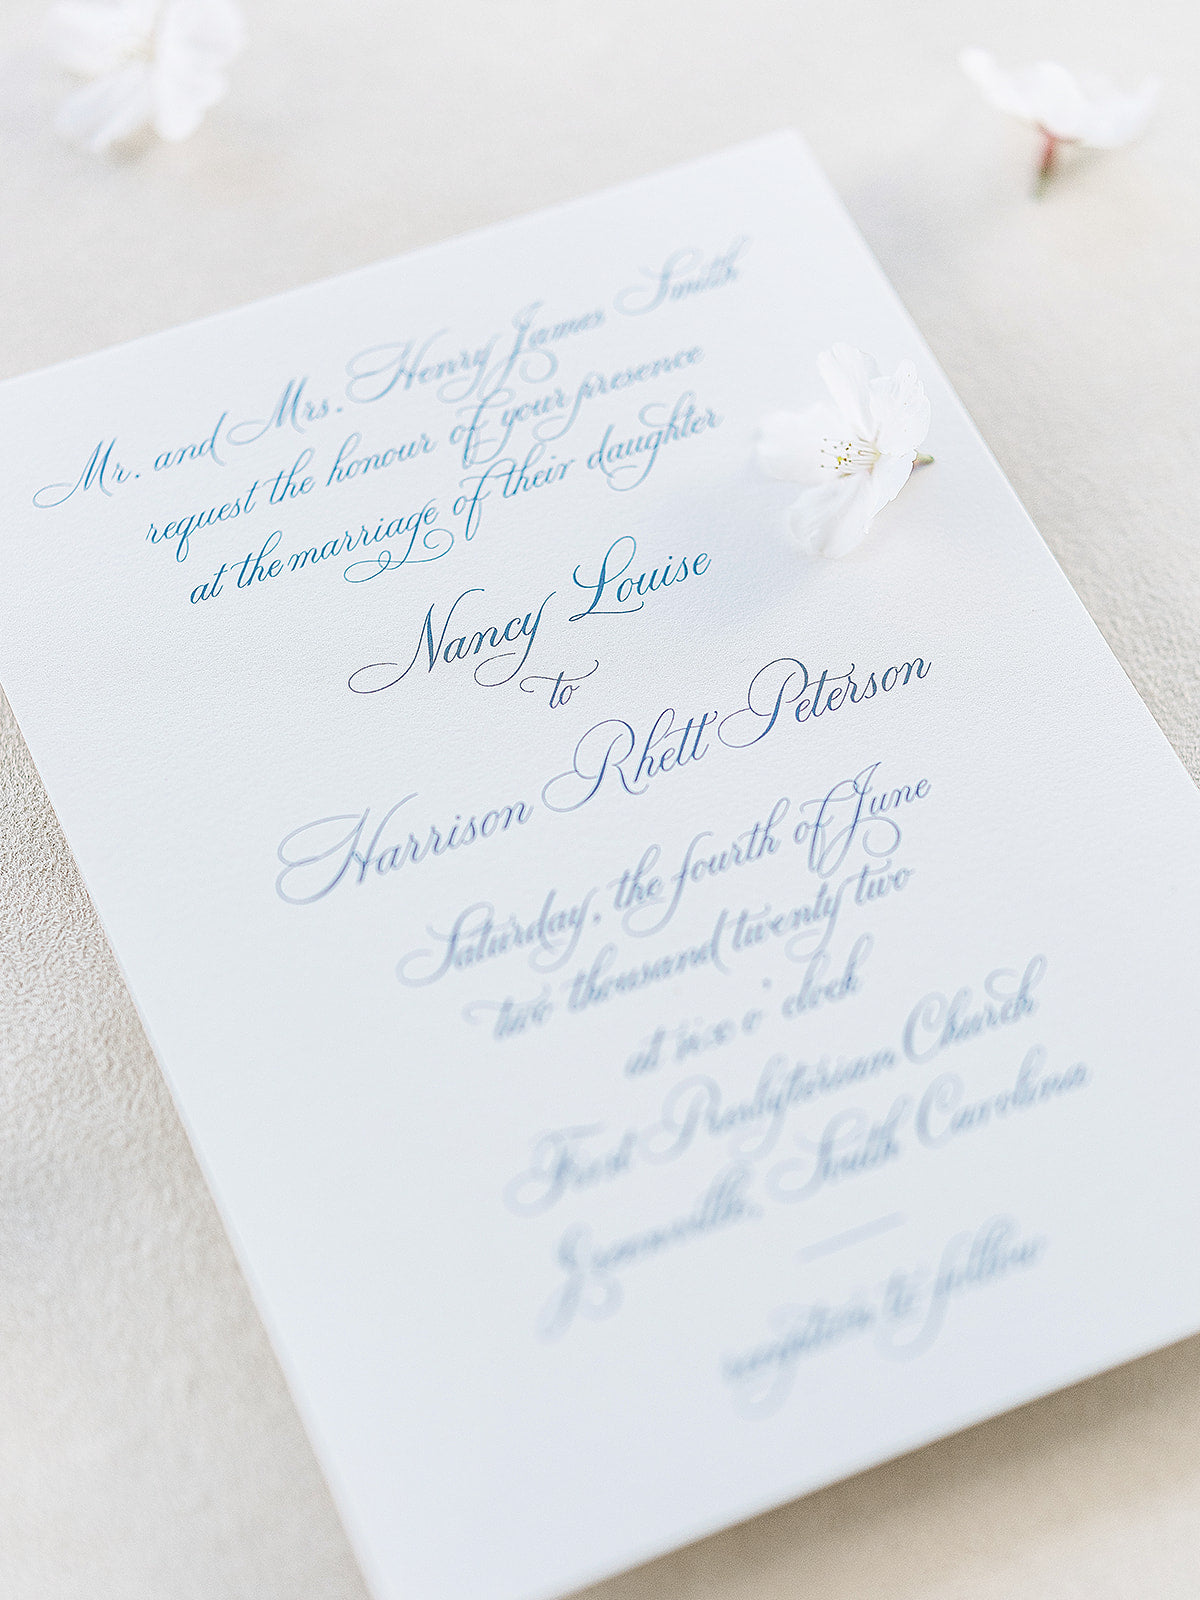 Mr. and Mrs. Henry James Smith
request the honour of your presence
at the marriage of their daughter
Nancy Louise
to
Harrison Rhett Peterson
Saturday, the fourth of June
two thousand twenty two
at six o'clock
First Presbyterian Church
Greenville, South Carolina
reception to follow